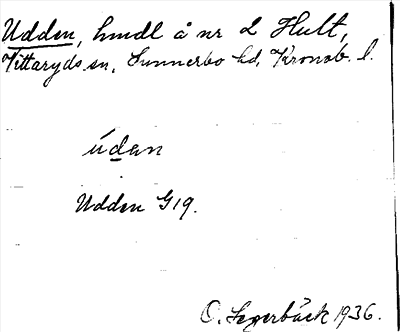 Udden, hmdl å nr 2 Hult,
Vittaryds sn, Sunnerbo hd, Kronob. l.
údan
Udden G19.
O. Segerbäck 1936.